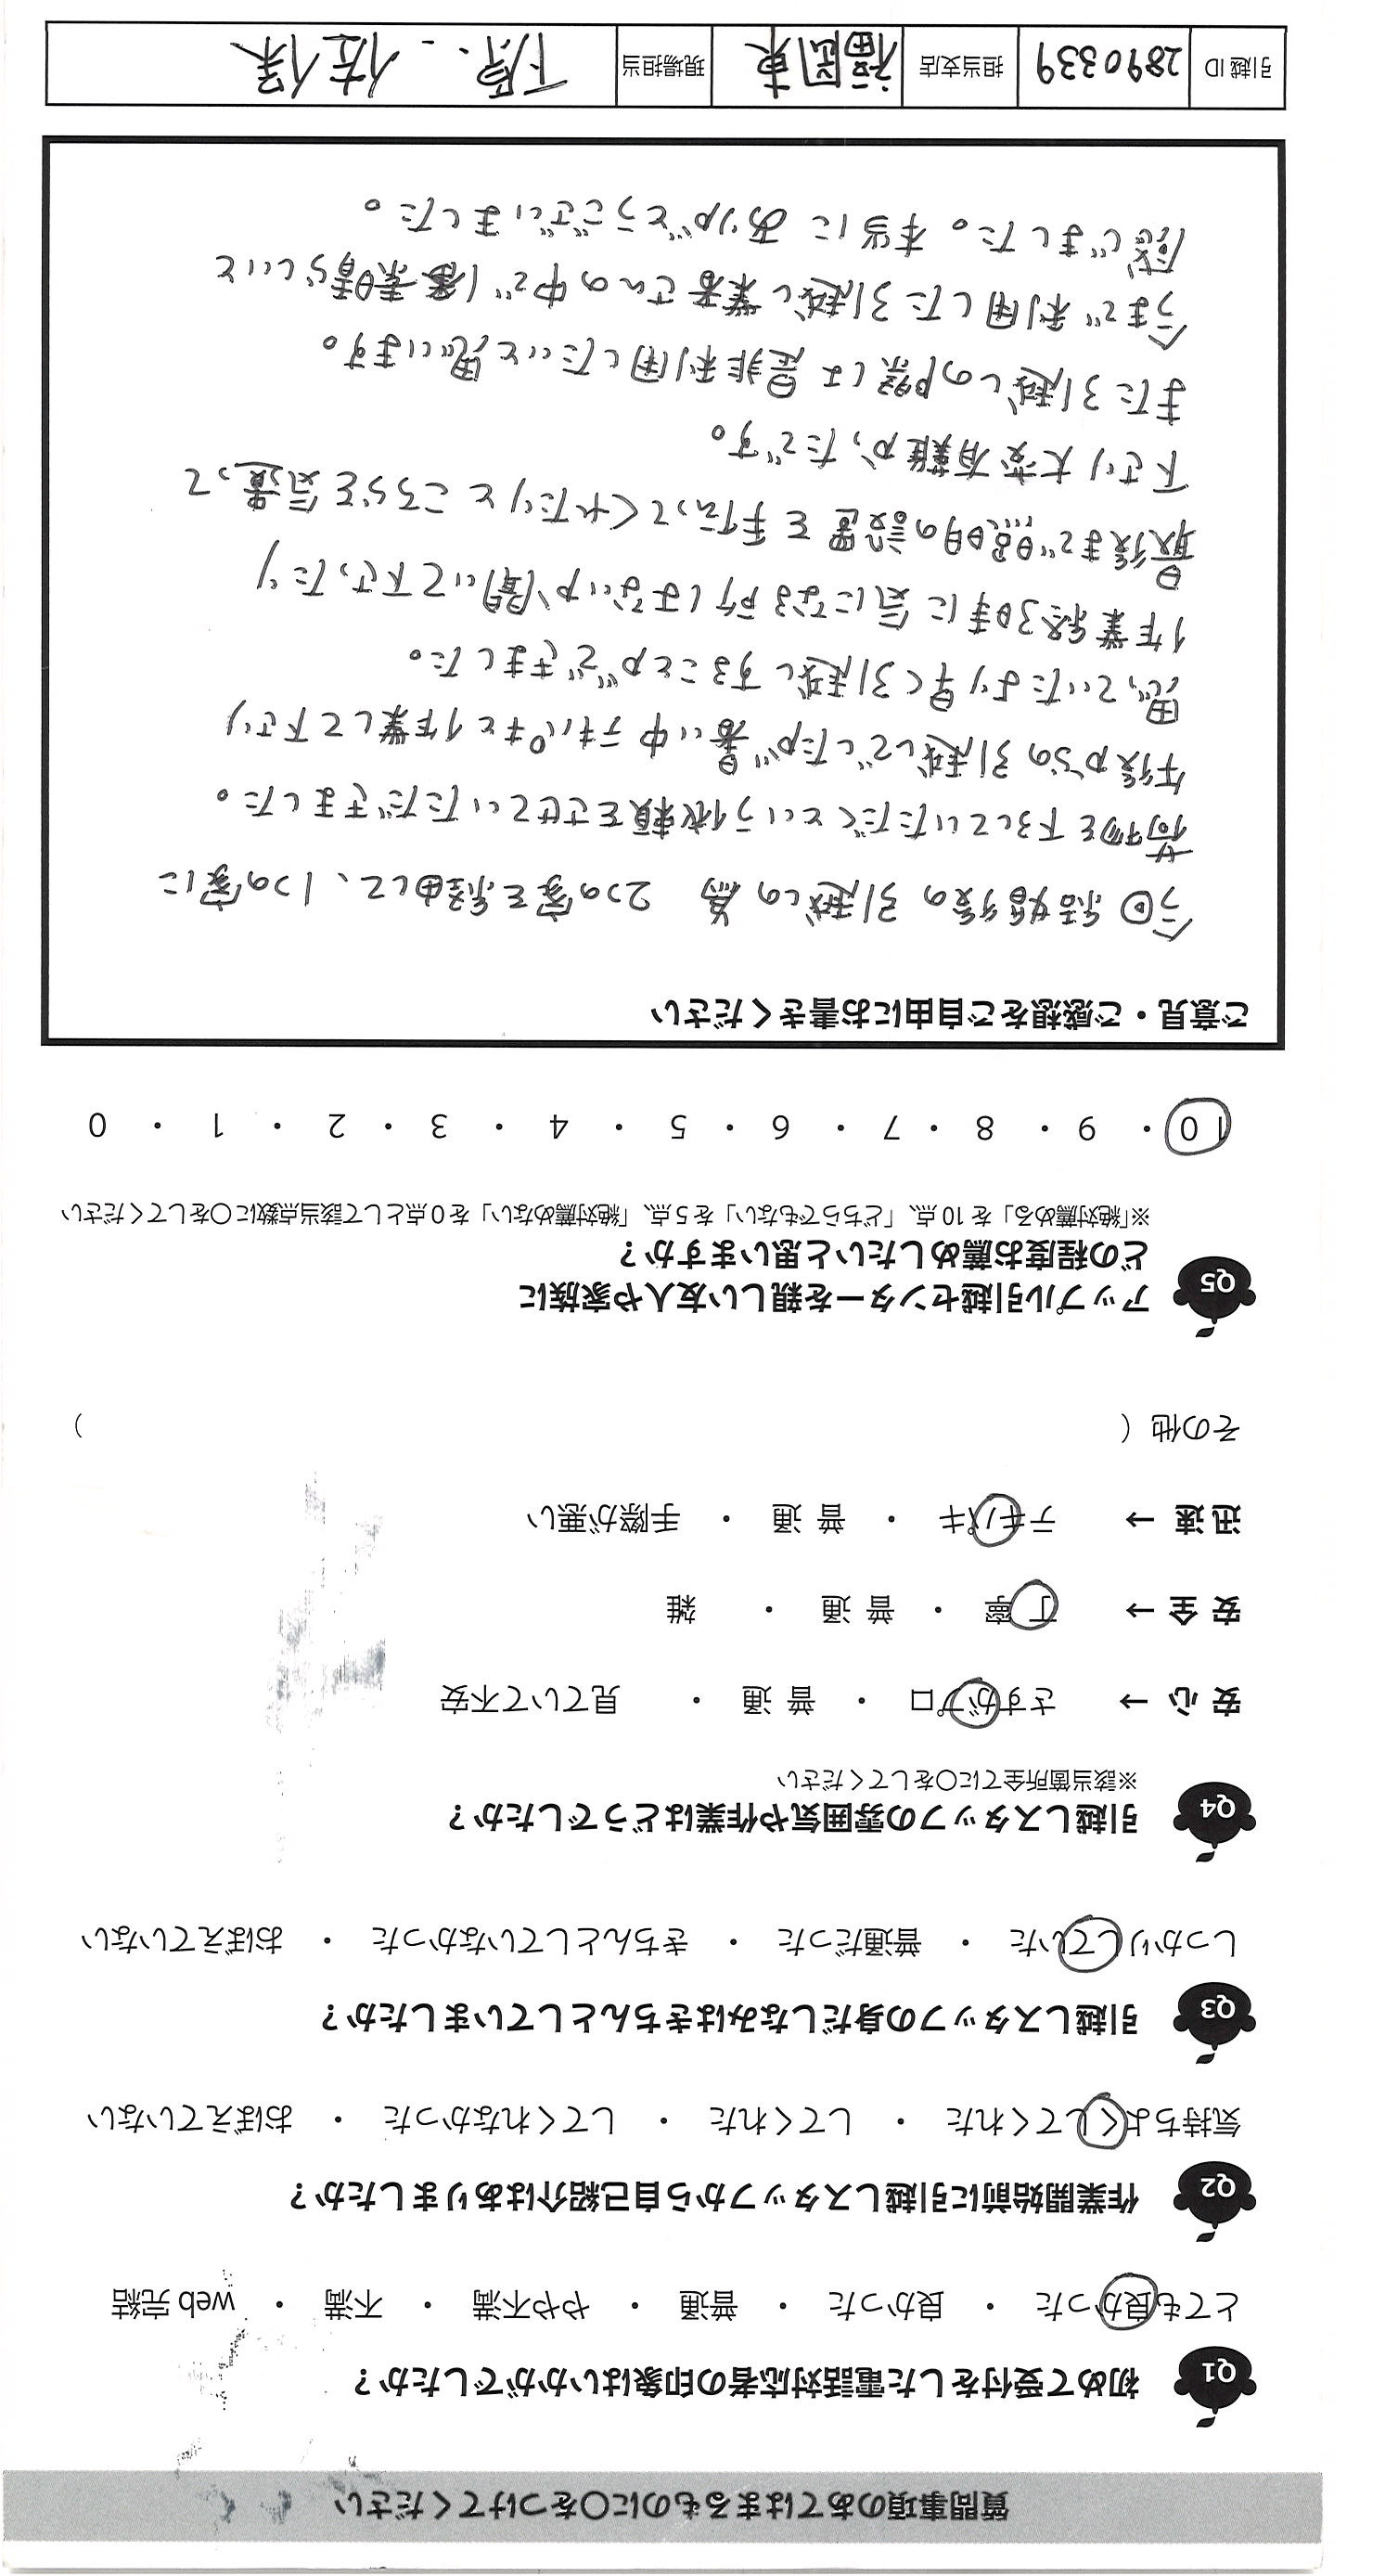 質問事項のあてはまるものに〇をつけてください
Q1 初めて受付をした電話対応者の印象はいかがでしたか？
とても良かった ・ 良かった ・ 普通 ・ やや不満 ・ 不満 ・ web 完結
Q2 作業開始前に引越しスタッフから自己紹介はありましたか？
気持ちよくしてくれた ・ してくれた ・ してくれなかった ・ おぼえていない
Q3 引越しスタッフの身だしなみはきちんとしていましたか？
しっかりしていた ・ 普通だった ・ きちんとしていなかった ・ おぼえていない
Q4 引越しスタッフの雰囲気や作業はどうでしたか？
※該当箇所全てに〇をしてください
安 心 → さすがプロ ・ 普 通 ・ 見ていて不安
安 全 → 丁 寧 ・ 普 通 ・ 雑
迅 速 → テキパキ ・ 普 通 ・ 手際が悪い
その他（ ）
Q5 アップル引越センターを親しい友人や家族に
どの程度お薦めしたいと思いますか？
※「絶対薦める」を 10 点、「どちらでもない」を 5 点、「絶対薦めない」を 0 点として該当点数に〇をしてください
10 ・ 9 ・ 8 ・ 7 ・ 6 ・ 5 ・ 4 ・ 3 ・ 2 ・ 1 ・ 0
ご意見・ご感想をご自由にお書きください
今回結婚後の引越しの為 2つの家を経由して、1つの家に
荷物を下ろしていただくという依頼をさせていただきました。
午後からの引越しでしたが暑い中テキパキと作業して下さり
思っていたより早く引越しすることができました。
作業終了時に気になる所はないか聞いて下さったり
最後まで照明の設置を手伝ってくれたりとこちらを気遣って
下さり大変有難かったです。
また引越しの際は是非利用したいと思います。
今まで利用した引越し業者さんの中で1番素晴らしいと
感じました。本当にありがとうございました。
引越 ID 2890339 担当支店 福岡東 現場担当 下原. 佐保